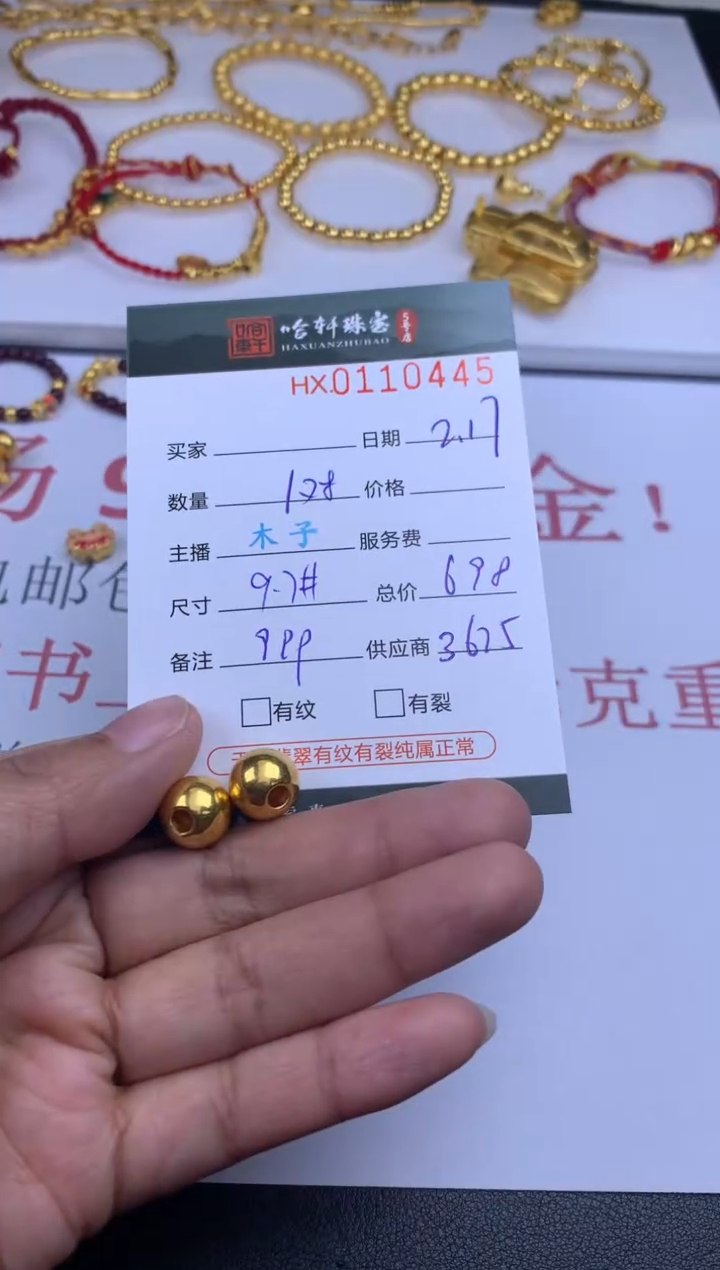 哈轩珠宝 5号店
HAXUANZHUBAO
HX.0110445
买家 日期 2.17
数量 128 价格
主播 木子 服务费
尺寸 9.7# 总价 698
备注 999 供应商 3675
有纹 有裂
翡翠有纹有裂纯属正常
场 9 金！
包邮
书 克重